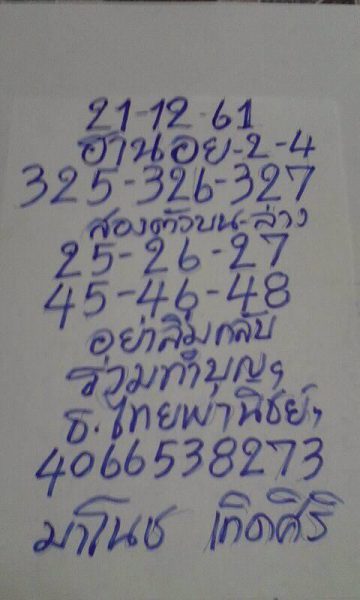 21-12-61
ฮานอย-2-4
325-326-327
สองตัวบน-ล่าง
25-26-27
45-46-48
อย่าลืมกลับ
ร่วมทำบุญฯ
ธ.ไทยพานิชย์ฯ
4066538273
มาโนช เกิดศิริ